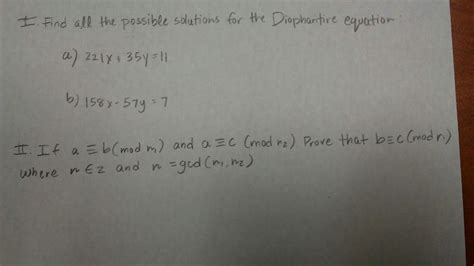 I. Find all the possible solutions for the Diophantire equation:
a) 221x + 35y = 11
b) 158x - 57y = 7
II. If a ≡ b (mod n₁) and a ≡ c (mod n₂) Prove that b ≡ c (mod n)
where n ∈ z and n = gcd (n₁, n₂)